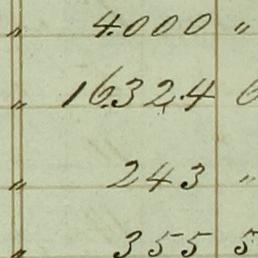 " 4.000 "
" 16.324 6
" 243 "
" 355 5